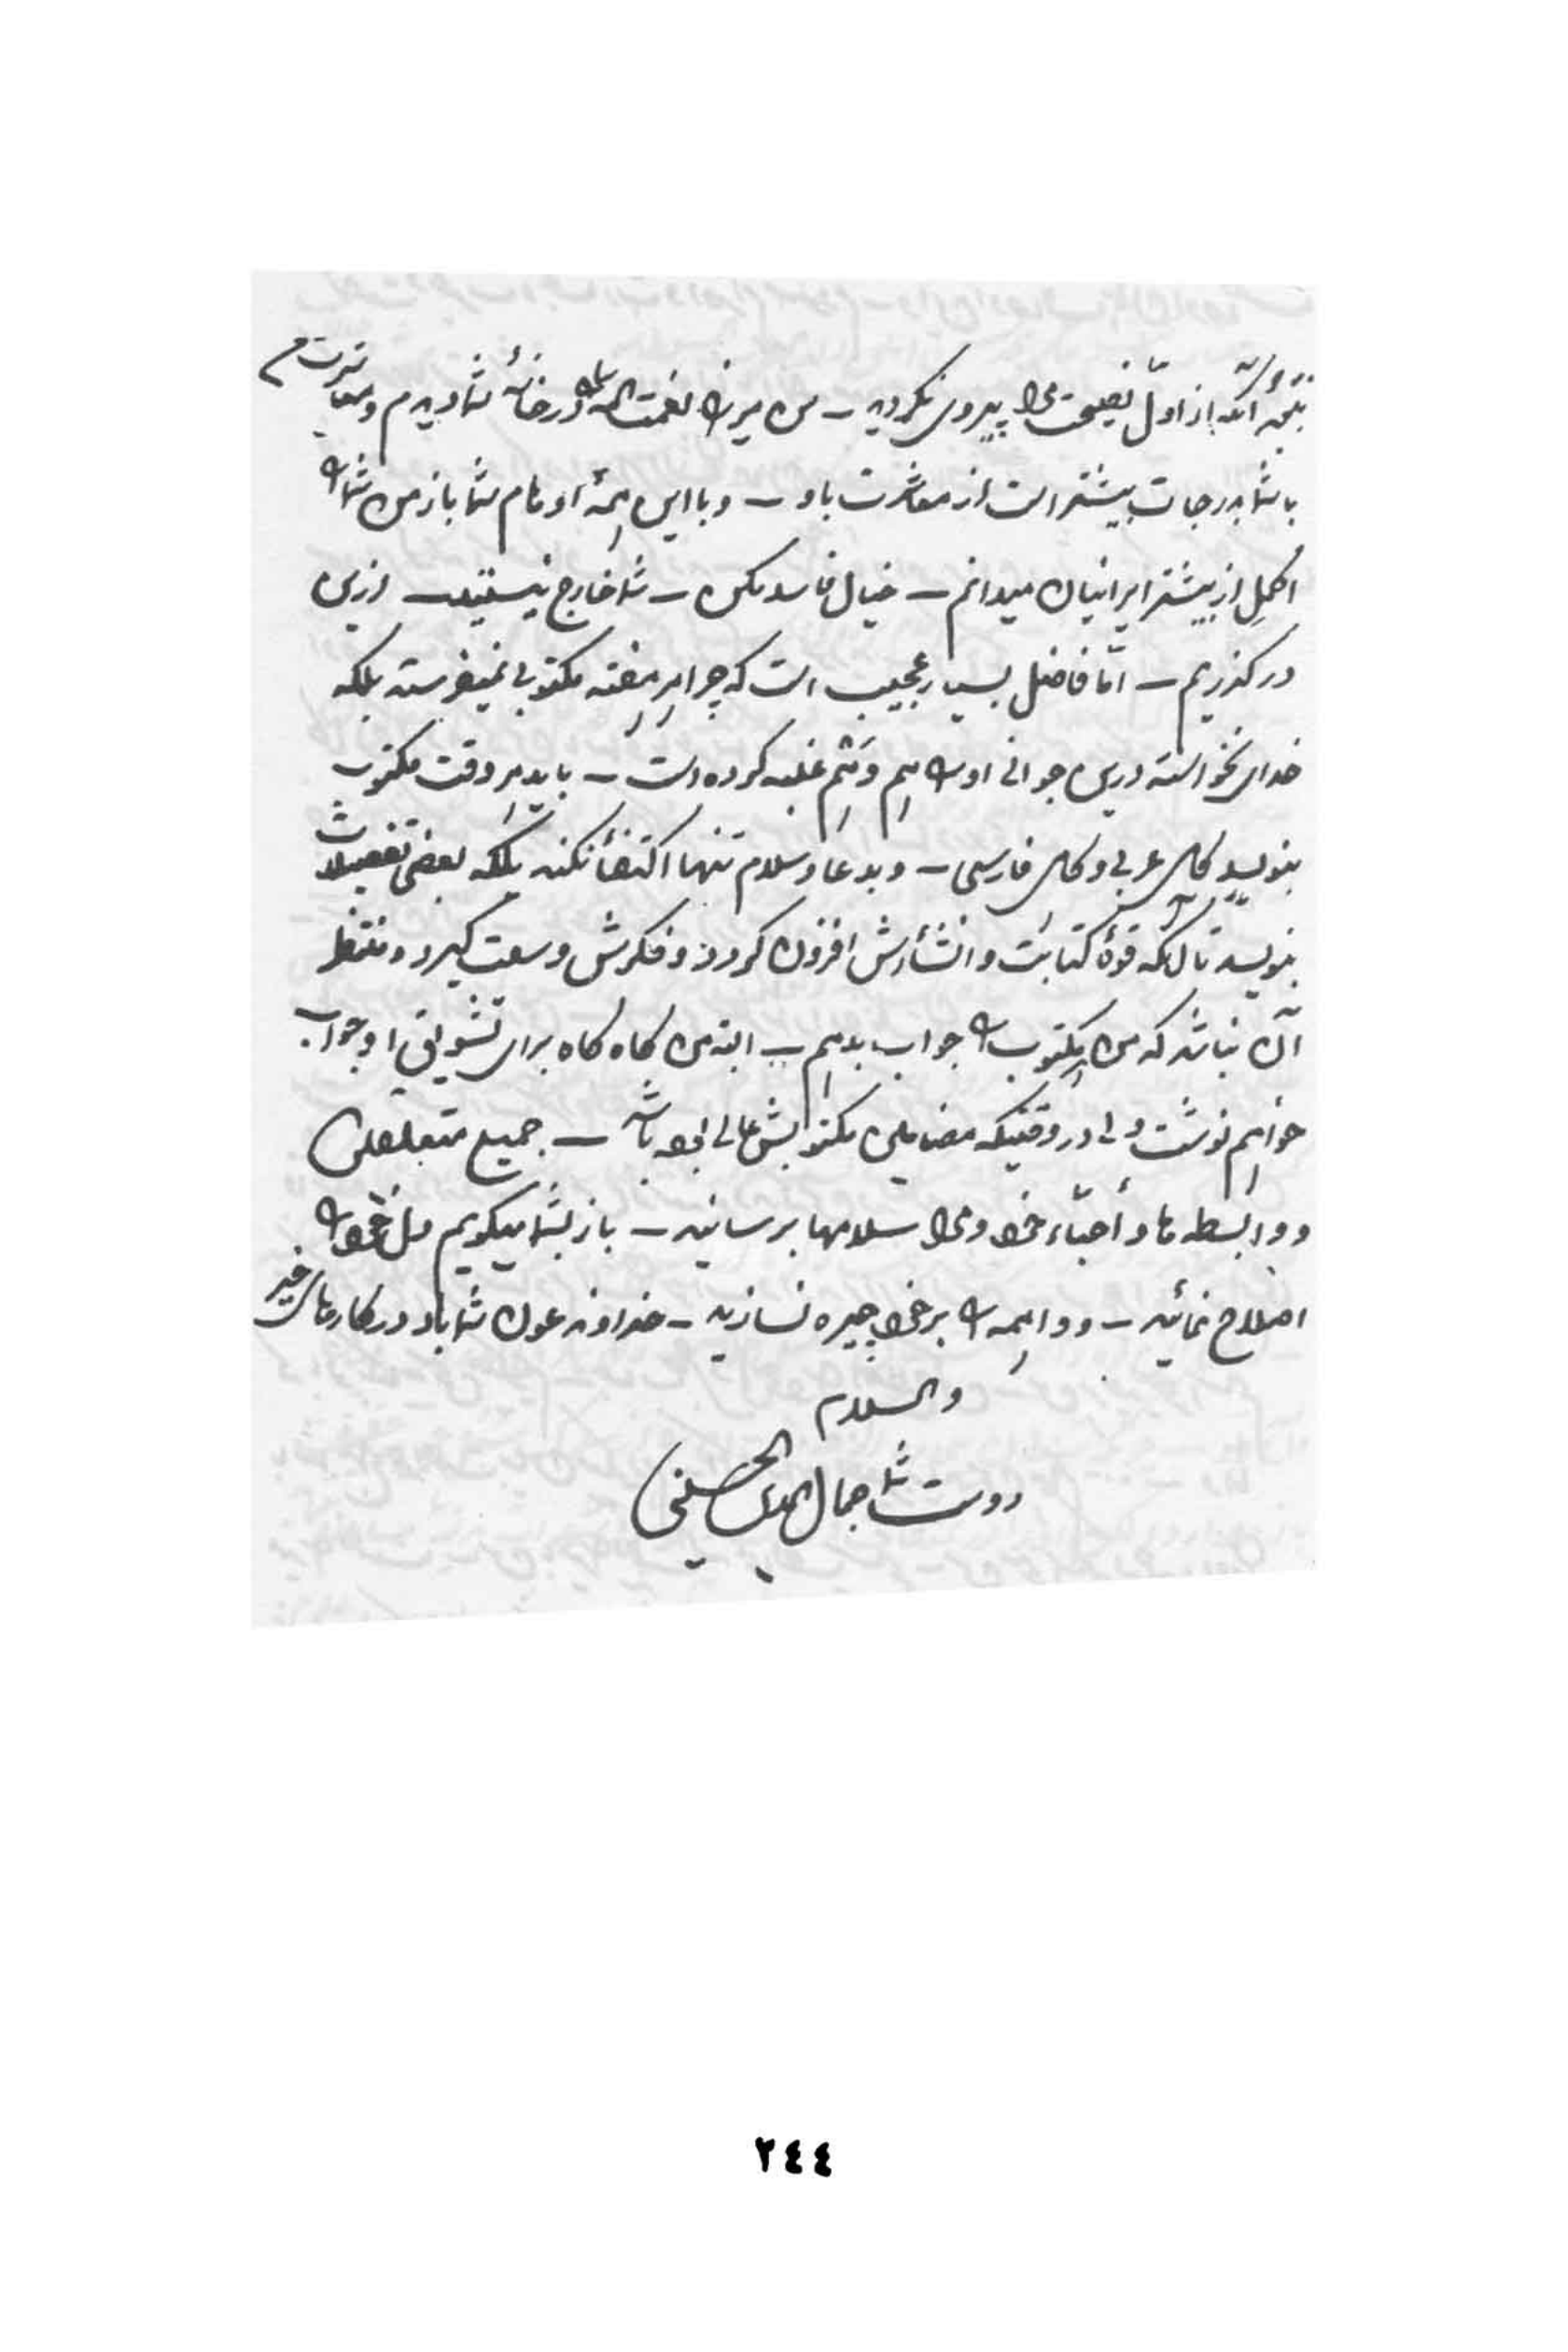 نتیجهٔ آنکه از اول نصیحت مرا پیروی نکردید ــ من میرزا نعمت الله را در خانهٔ شما دیدم و معاشرتم
با شما بدرجات بیشتر است از معاشرت باو ــ و با این همهٔ اوهام شما باز من شما را
اکمل از بیشتر ایرانیان میدانم ــ خیال فاسد مکن ــ شما خارج نیستید ــ ازین
در گذریم ــ امّا فاضل بسیار عجیب است که چرا هر هفته مکتوبی نمیفرستد بلکه
خدای نخواسته درین جوانی او را هم وَهم غلبه کرده است ــ باید هر وقت مکتوب
بنویسد گاهی عربی و گاهی فارسی ــ و بدعا و سلام تنها اکتفأ نکند بلکه بعضی تفصیلات
بنویسد تا آنکه قوهٔ کتابت و انشأش افزون گردد و فکرش وسعت گیرد و منتظر
آن نباشد که من هر مکتوب را جواب بدهم ــ البته من گاه گاه برای تشویق او جواب
خواهم نوشت ولی در وقتیکه مضامین مکتوبش عالی بوده باشد ــ جمیع متعلقین
و وابسطه ها و أحبّاء خود و مرا سلامها برسانید ــ باز بشما میگویم دل خود را
اصلاح نمائید ــ و واهمه را بر خود چیره نسازید ــ خداوند عون شما باد در کارهای خیر
والسلام
دوست شما جمال الدین الحسینی
٢٤٤